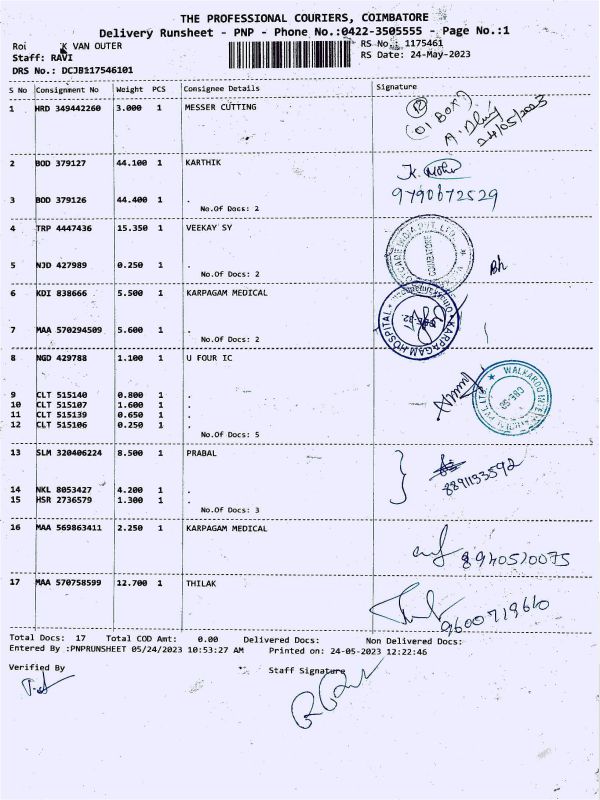 THE PROFESSIONAL COURIERS, COIMBATORE
Delivery Runsheet - PNP - Phone No.:0422-3505555 - Page No.:1
K VAN OUTER
RS No. 1175461
Staff: RAVI
RS Date: 24-May-2023
DRS No.: DCJB117546101
S No Consignment No Weight PCS Consignee Details Signature
1 HRD 349442260 3.000 1 MESSER CUTTING
12
(01 BOX)
24/05/2023
2 BOD 379127 44.100 1 KARTHIK
9790672529
3 BOD 379126 44.400 1 .
No.Of Docs: 2
4 TRP 4447436 15.350 1 VEEKAY SY
COIMBATORE
5 NJD 427989 0.250 1 .
No.Of Docs: 2
6 KDI 838666 5.500 1 KARPAGAM MEDICAL
KARPAGAM HOSPITAL
7 MAA 570294509 5.600 1 .
No.Of Docs: 2
8 NGD 429788 1.100 1 U FOUR IC
WALKAROO INTERNATIONAL PVT LTD.
9 CLT 515140 0.800 1 .
10 CLT 515107 1.600 1 .
11 CLT 515139 0.650 1 .
12 CLT 515106 0.250 1 .
No.Of Docs: 5
13 SLM 320406224 8.500 1 PRABAL
8891133592
14 NKL 8053427 4.200 1 .
15 HSR 2736579 1.300 1 .
No.Of Docs: 3
16 MAA 569863411 2.250 1 KARPAGAM MEDICAL
8940520075
17 MAA 570758599 12.700 1 THILAK
9600719610
Total Docs: 17 Total COD Amt: 0.00 Delivered Docs: Non Delivered Docs:
Entered By :PNPRUNSHEET 05/24/2023 10:53:27 AM Printed on: 24-05-2023 12:22:46
Verified By Staff Signature